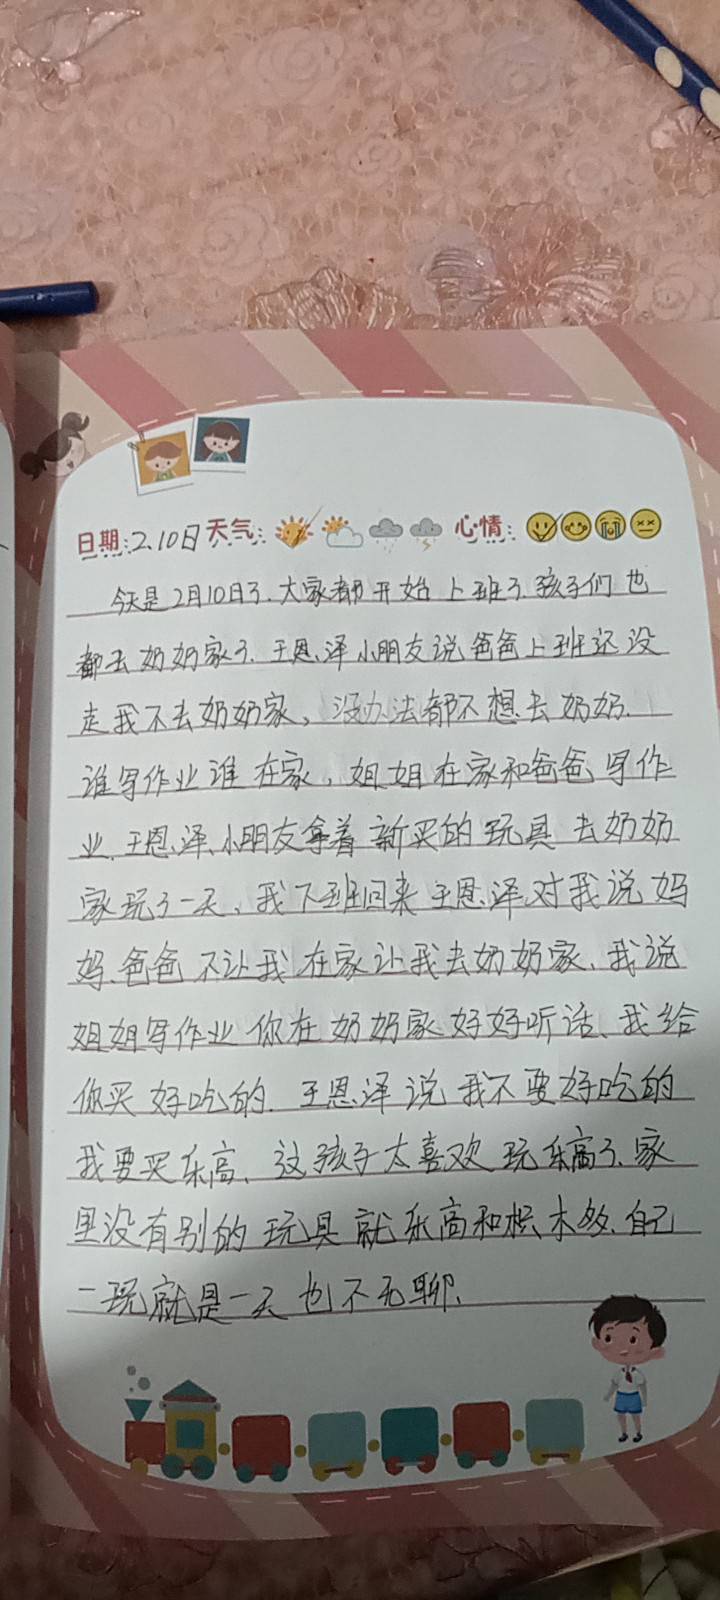 日期:2.10日 天气: 心情:
今天是2月10日了.大家都开始上班了.孩子们也
都去奶奶家了.王恩泽小朋友说爸爸上班还没
走我不去奶奶家、没办法都不想去奶奶.
谁写作业谁在家,姐姐在家和爸爸写作
业.王恩泽小朋友拿着新买的玩具去奶奶
家玩了一天、我下班回来王恩泽对我说妈
妈.爸爸不让我在家让我去奶奶家、我说
姐姐写作业你在奶奶家好好听话、我给
你买好吃的.王恩泽说我不要好吃的
我要买乐高、这孩子太喜欢玩乐高了.家
里没有别的玩具就乐高和积木多.自己
一玩就是一天也不无聊.